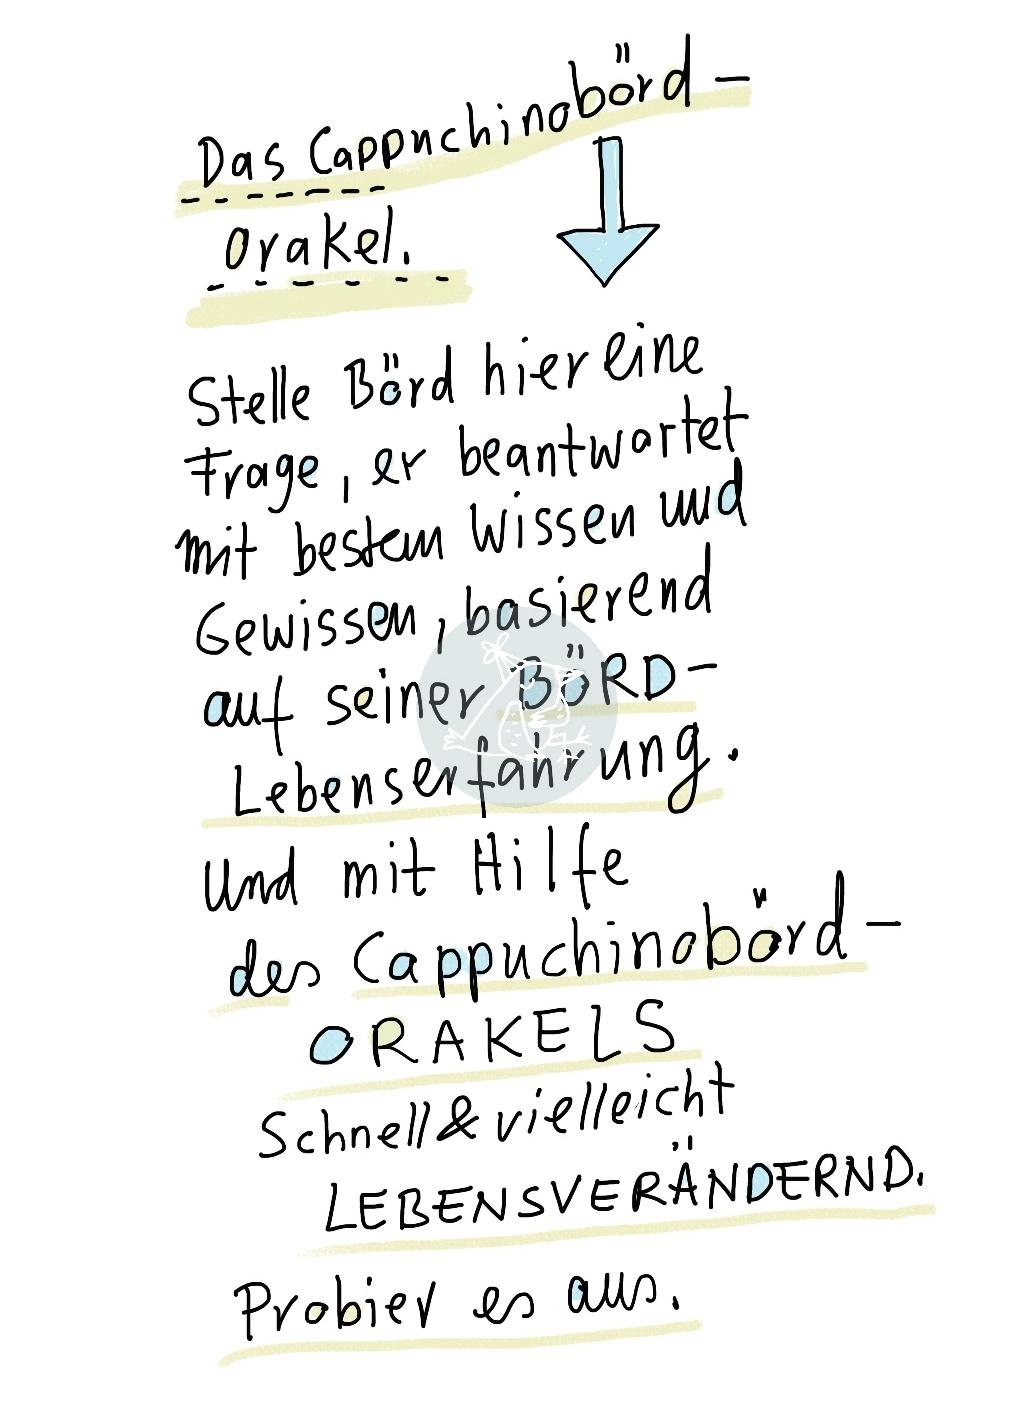 Das Cappuchinobörd-
Orakel.
Stelle Börd hier eine
Frage, er beantwortet
mit bestem Wissen und
Gewissen, basierend
auf seiner BÖRD-
Lebenserfahrung.
Und mit Hilfe
des Cappuchinobörd-
ORAKELS
Schnell & vielleicht
LEBENSVERÄNDERND.
Probier es aus.